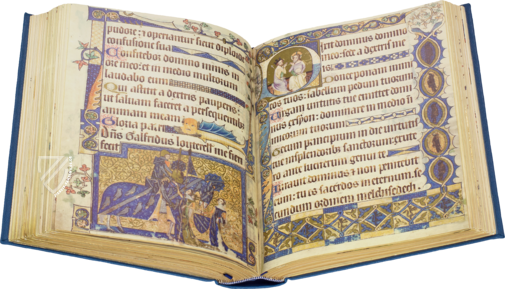 pudore: et operiantur sicut diploide
confusione sua
Confitebor domino nimis in
ore meo: et in medio multorum
laudabo eum
Quia astitit a dextris pauperis:
ut saluam faceret a persequentibus
Gloria patri
Dns Galfridus louterell me fieri
fecit
Dixit dominus domino
meo: sede a dextris me
is
Donec ponam inimi
cos tuos: scabellum pedum tuorum
Uirgam uirtutis tue emittet domi
nus ex syon: dominare in medio i
nimicorum tuorum
Tecum principium in die uirtutis
tue in splendoribus sanctorum: ex ute
ro ante luciferum genui te
Iurauit dominus et non penitebit
eum: tu es sacerdos in eternum se
cundum ordinem melchisedech